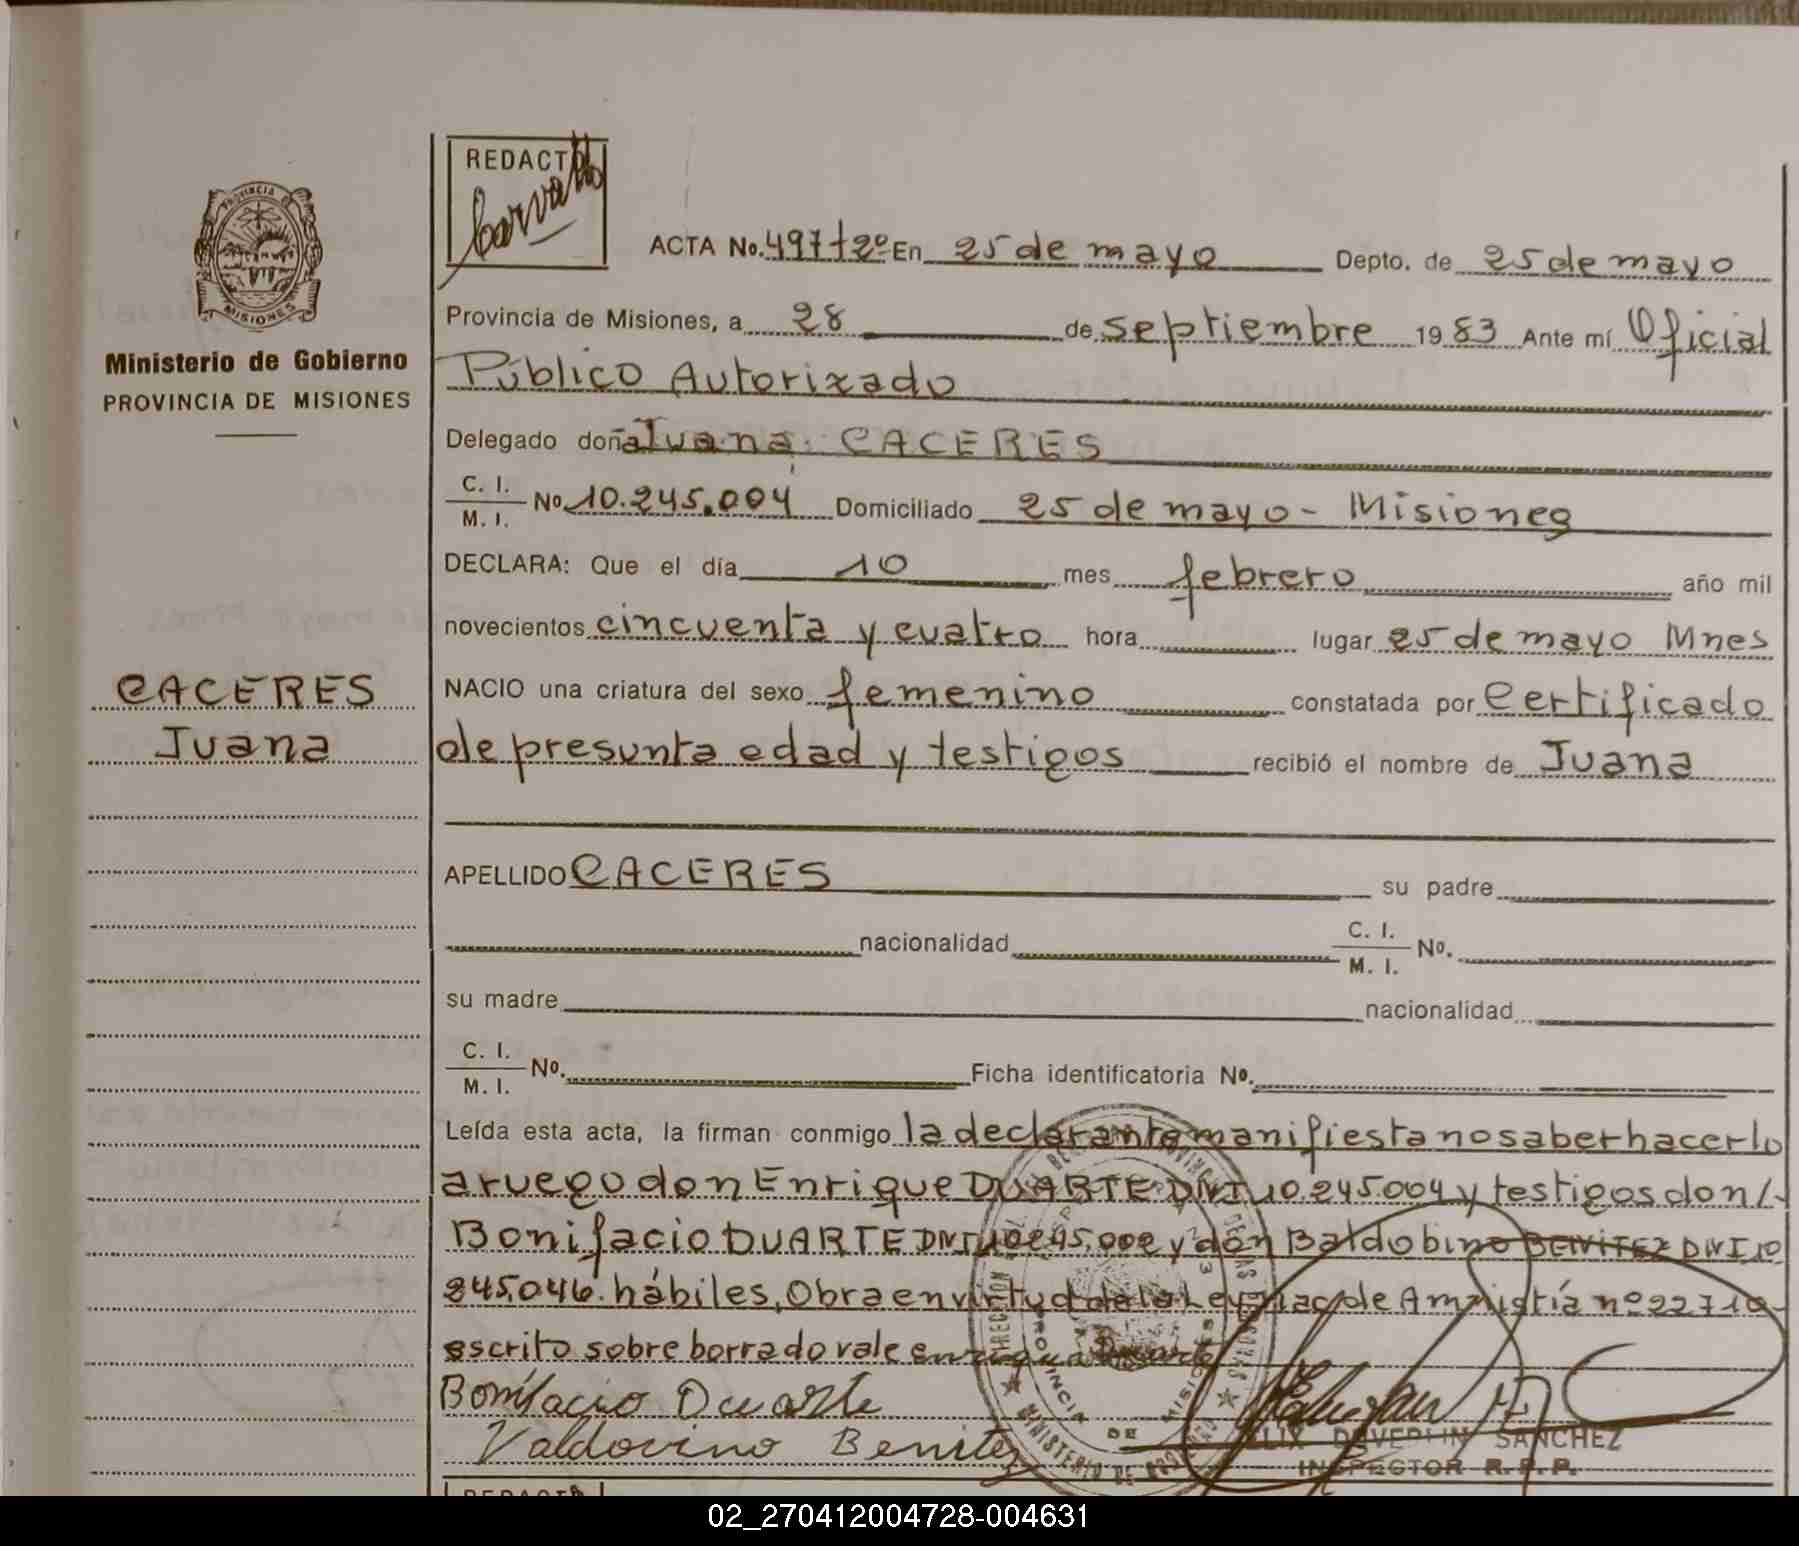 REDACTÓ
Carvallo
ACTA No. 497 tº 2º En 25 de mayo Depto. de 25 de mayo
Provincia de Misiones, a 28 de septiembre 1983 Ante mí Oficial
Público Autorizado
PROVINCIA DE
MISIONES
Ministerio de Gobierno
PROVINCIA DE MISIONES
Delegado doña Juana CACERES
C. I.
M. I.
No 10.245.004 Domiciliado 25 de mayo - Misiones
DECLARA: Que el día 10 mes febrero año mil
novecientos cincuenta y cuatro hora lugar 25 de mayo Mnes
CACERES
Juana
NACIO una criatura del sexo femenino constatada por Certificado
de presunta edad y testigos recibió el nombre de Juana
APELLIDO CACERES su padre
nacionalidad C. I.
M. I. No.
su madre nacionalidad
C. I.
M. I. No. Ficha identificatoria No.
Leída esta acta, la firman conmigo la declarante manifiesta no saber hacerlo
a ruego don Enrique DUARTE DNI 10.245.004 y testigos don
Bonifacio DUARTE DNI 10245.002 y don Baldobino BENITEZ DNI 10
245.046. hábiles, Obra en virtud de la Ley Nac de Amnistía nº 22710-
escrito sobre borrado vale enrique Duarte
Bonifacio Duarte
Valdovino Benitez
SANCHEZ
INSPECTOR R.P.P.
PROVINCIA DE MISIONES
MINISTERIO DE
REDACTÓ
02_270412004728-004631